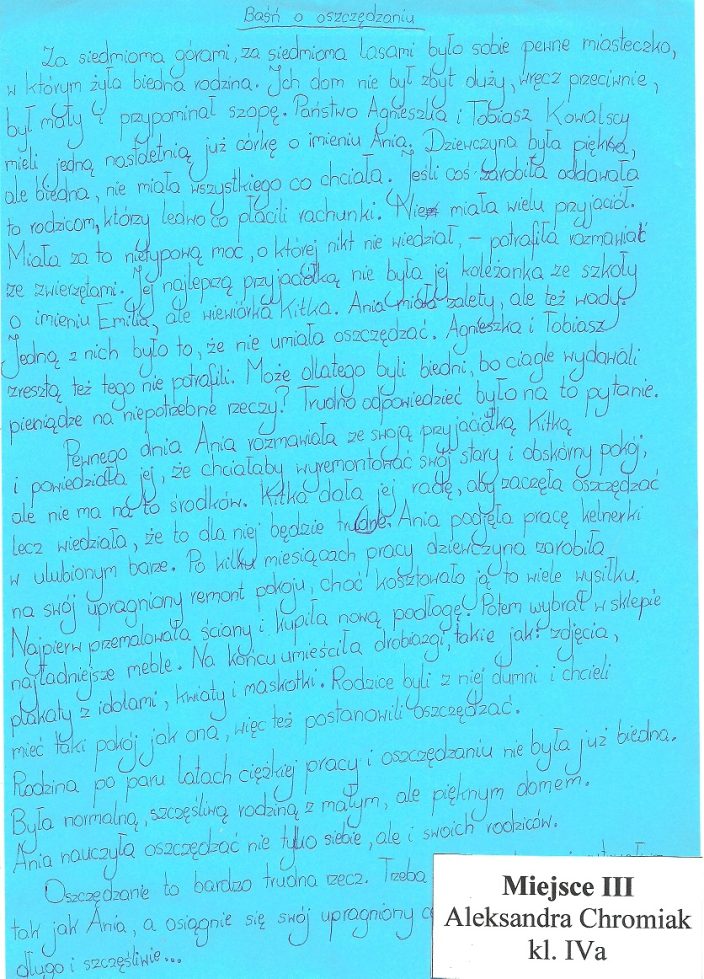 Baśń o oszczędzaniu
Za siedmioma górami, za siedmioma lasami było sobie pewne miasteczko,
w którym żyła biedna rodzina. Ich dom nie był zbyt duży, wręcz przeciwnie,
był mały i przypominał szopę. Państwo Agnieszka i Tobiasz Kowalscy
mieli jedną nastoletnią już córkę o imieniu Ania. Dziewczyna była piękna,
ale biedna, nie miała wszystkiego co chciała. Jeśli coś zarobiła oddawała
to rodzicom, którzy ledwo co płacili rachunki. Nie miała wielu przyjaciół.
Miała za to nietypową moc, o której nikt nie wiedział, – potrafiła rozmawiać
ze zwierzętami. Jej najlepszą przyjaciółką nie była jej koleżanka ze szkoły
o imieniu Emilia, ale wiewiórka Kitka. Ania miała zalety, ale też wady.
Jedną z nich było to, że nie umiała oszczędzać. Agnieszka i Tobiasz
zresztą też tego nie potrafili. Może dlatego byli biedni, bo ciągle wydawali
pieniądze na niepotrzebne rzeczy? Trudno odpowiedzieć było na to pytanie.
Pewnego dnia Ania rozmawiała ze swoją przyjaciółką Kitką
i powiedziała jej, że chciałaby wyremontować swój stary i obskórny pokój,
ale nie ma na to środków. Kitka dała jej radę, aby zaczęła oszczędzać
lecz wiedziała, że to dla niej będzie trudne. Ania podjęła pracę kelnerki
w ulubionym barze. Po kilku miesiącach pracy dziewczyna zarobiła
na swój upragniony remont pokoju, choć kosztowało ją to wiele wysiłku.
Najpierw przemalowała ściany i kupiła nową podłogę. Potem wybrał w sklepie
najładniejsze meble. Na końcu umieściła drobiazgi, takie jak: zdjęcia,
plakaty z idolami, kwiaty i maskotki. Rodzice byli z niej dumni i chcieli
mieć taki pokój jak ona, więc też postanowili oszczędzać.
Rodzina po paru latach ciężkiej pracy i oszczędzaniu nie była już biedna.
Była normalną, szczęśliwą rodziną z małym, ale pięknym domem.
Ania nauczyła oszczędzać nie tylko siebie, ale i swoich rodziców.
Oszczędzanie to bardzo trudna rzecz. Trzeba
tak jak Ania, a osiągnie się swój upragniony
długo i szczęśliwie...
Miejsce III
Aleksandra Chromiak
kl. IVa